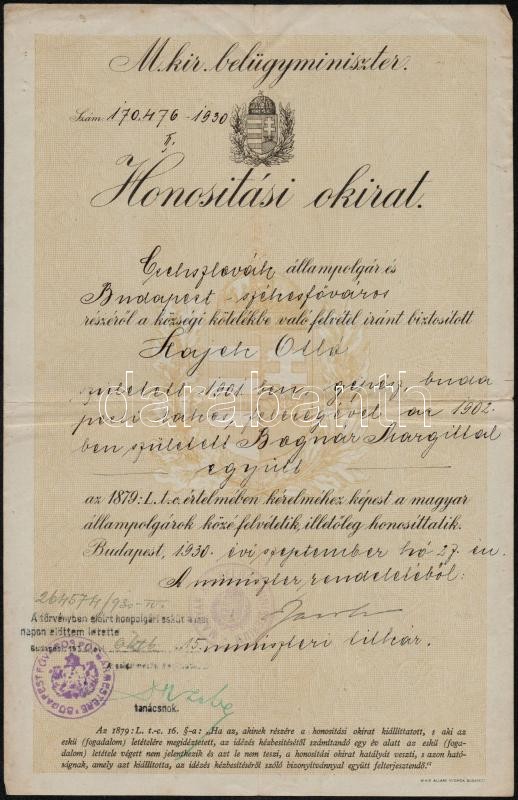 M. kir. belügyminiszter.
Szám: 170.476 - 1930
II.
Honosítási okirat.
Csehszlovák állampolgár és
Budapest székesfőváros
részéről a községi kötelékbe való felvétel iránt biztosított
Hajek Ottó
született 1901 ben, gépész, buda-
pesti lakos, feleségével az 1902.
ben született Bognár Margittal
együtt
az 1879: L. t. c. értelmében kérelméhez képest a magyar
állampolgárok közé felvétetik, illetőleg honosíttatik.
Budapest, 1930. évi szeptember hó 27. én.
A miniszter rendeletéből:
264574/930-IV.
A törvényben előírt honpolgári esküt a mai
napon előttem letette
Budapest, 193 évi okt. 15.
miniszteri titkár.
tanácsnok.
BUDAPEST FŐVÁROS POLGÁRMESTERE
Az 1879: L. t.-c. 16. §-a: „Ha az, akinek részére a honosítási okirat kiállíttatott, s aki az
eskü (fogadalom) letételére megidéztetett, az idézés kézbesítésétől számítandó egy év alatt az eskü (foga-
dalom) letétele végett nem jelentkezik és azt le nem teszi, a honosítási okirat hatályát veszti, s azon ható-
ságnak, amely azt kiállította, az idézés kézbesítéséről szóló bizonyítvánnyal együtt felterjesztendő."
M. KIR. ÁLLAMI NYOMDA, BUDAPEST
darabanth.com